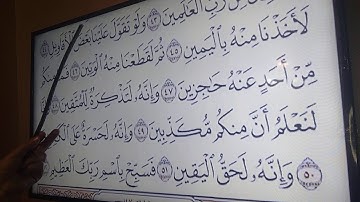 مِّن رَّبِّ ٱلْعَٰلَمِينَ ٤٣ وَلَوْ تَقَوَّلَ عَلَيْنَا بَعْضَ
لَأَخَذْنَا مِنْهُ بِٱلْيَمِينِ ٤٥ ثُمَّ لَقَطَعْنَا مِنْهُ ٱلْوَتِينَ ٤٦ فَمَا مِنكُم
مِّنْ أَحَدٍ عَنْهُ حَٰجِزِينَ ٤٧ وَإِنَّهُۥ لَتَذْكِرَةٌ لِّلْمُتَّقِينَ
لَنَعْلَمُ أَنَّ مِنكُم مُّكَذِّبِينَ ٤٩ وَإِنَّهُۥ لَحَسْرَةٌ عَلَى
٥٠ وَإِنَّهُۥ لَحَقُّ ٱلْيَقِينِ ٥١ فَسَبِّحْ بِٱسْمِ رَبِّكَ ٱلْعَظِيمِ